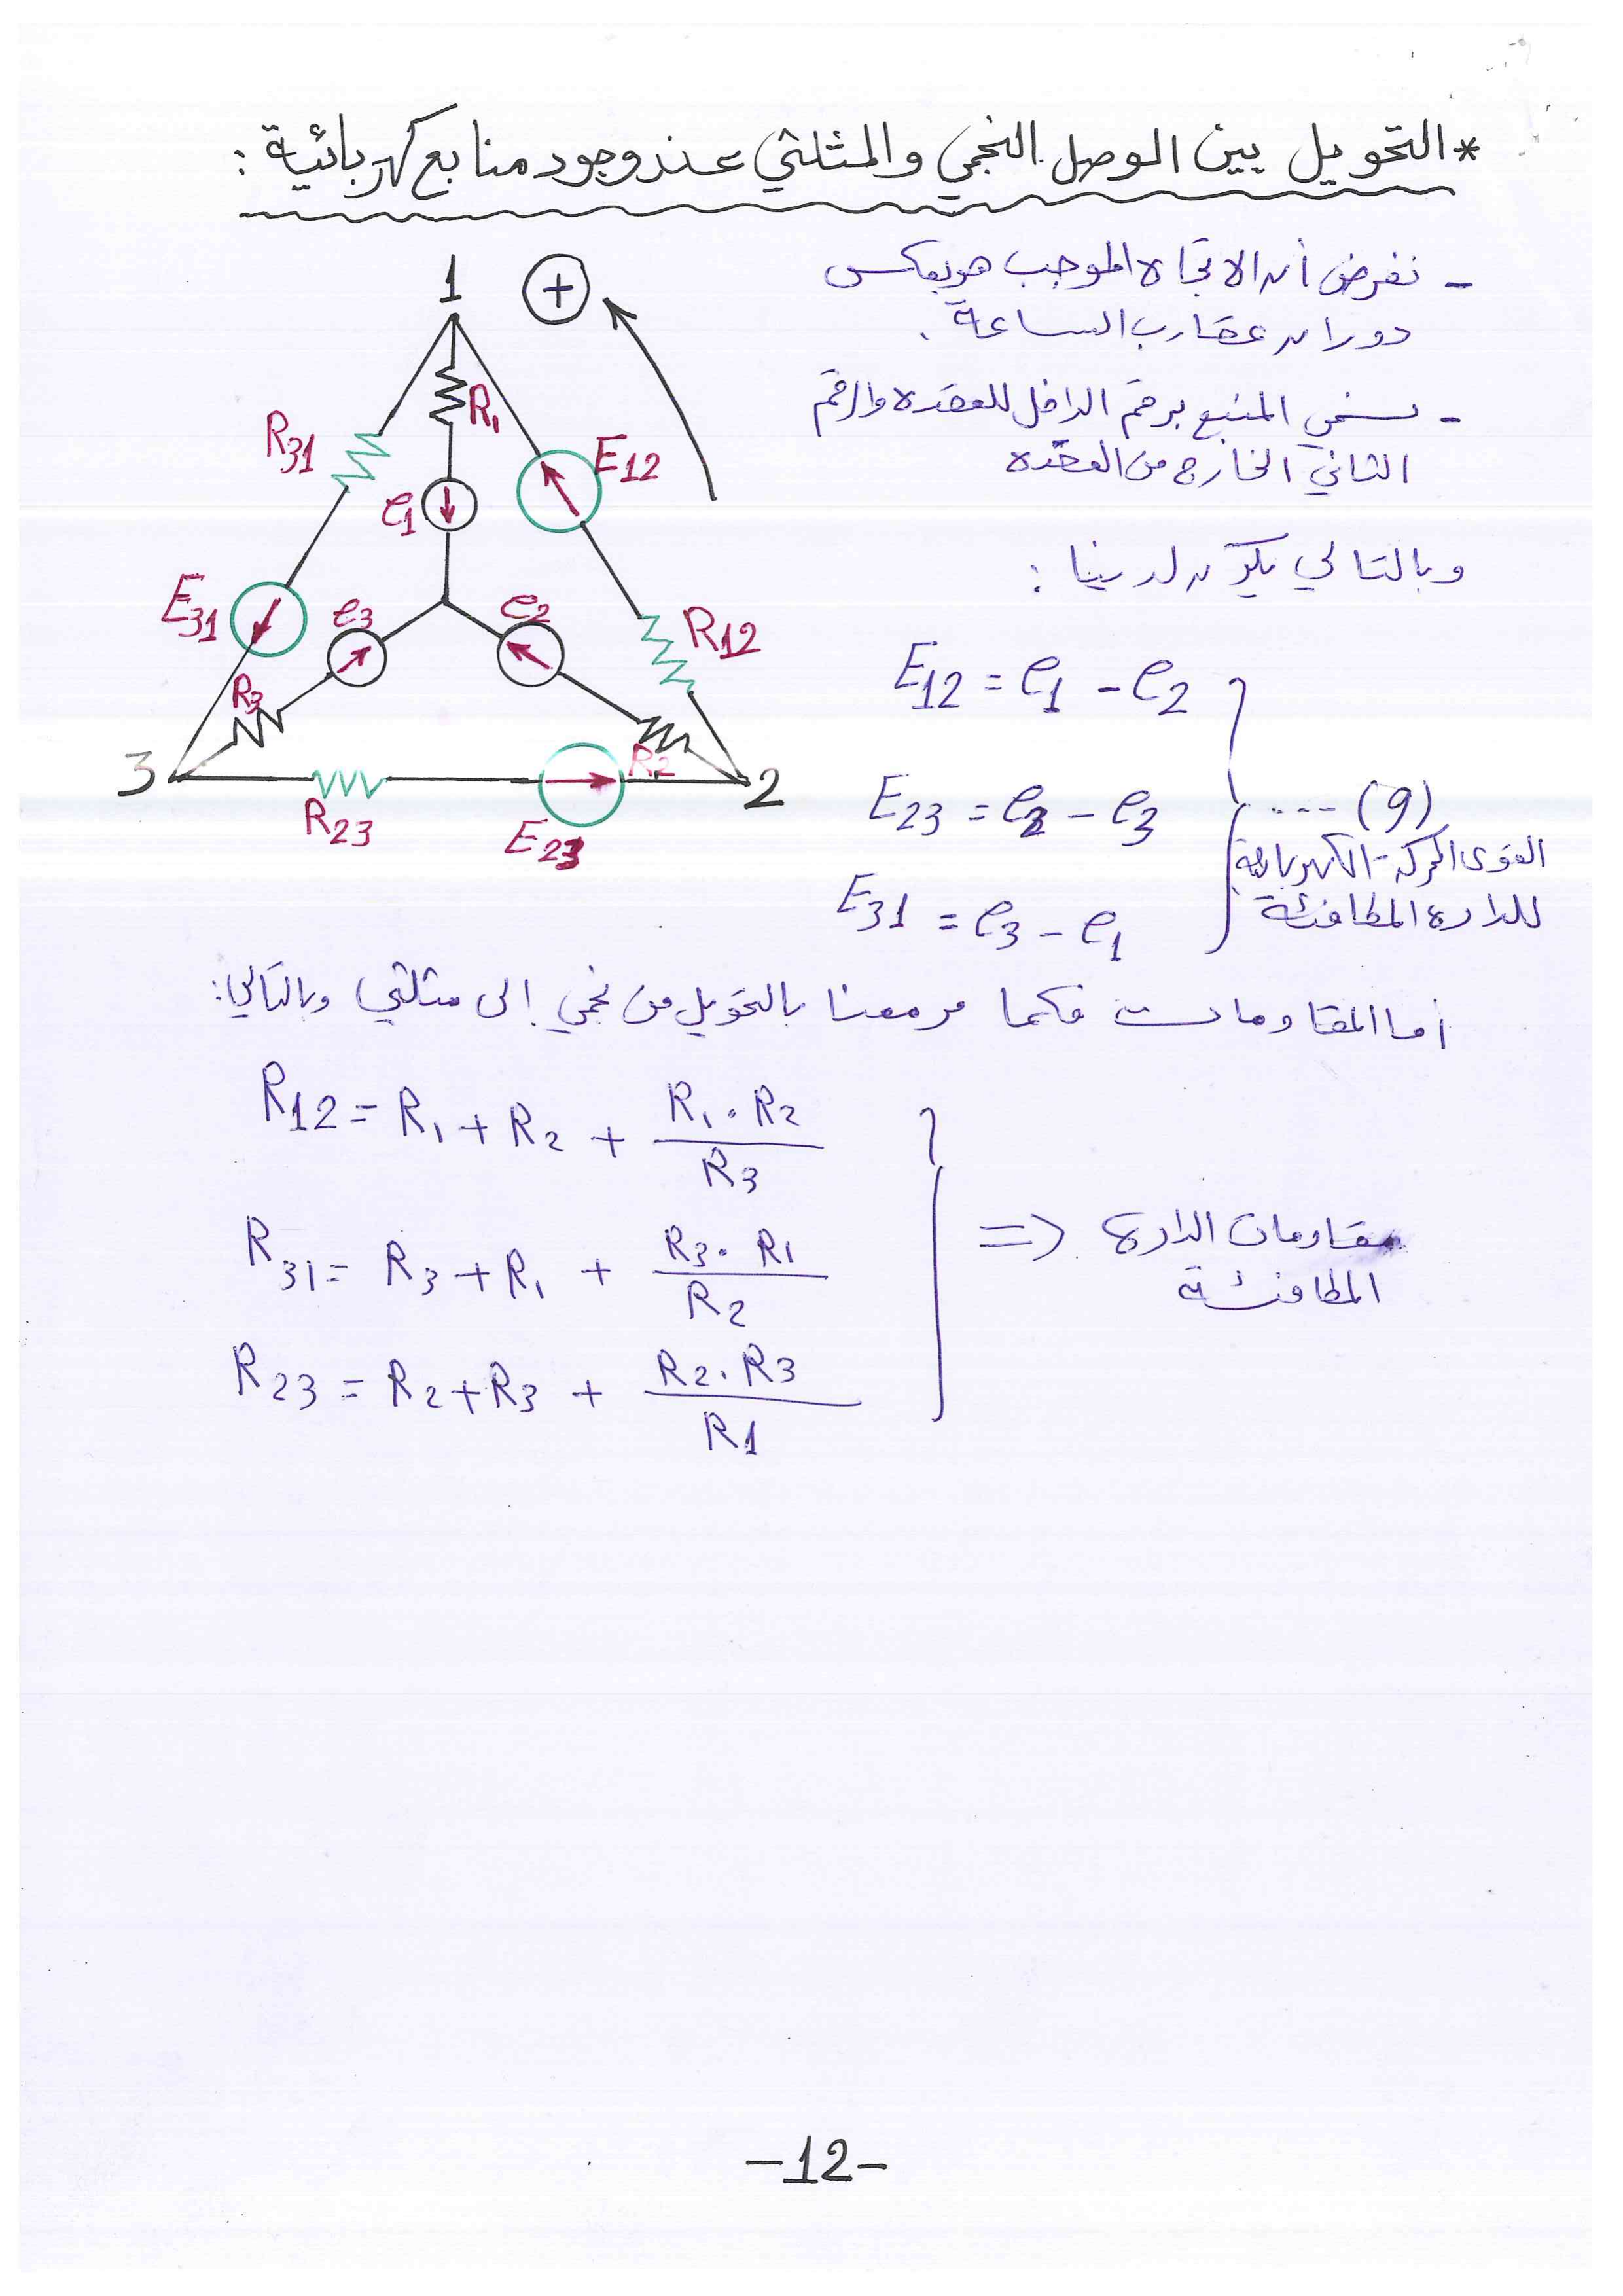 * التحويل بين الوصل النجمي والمثلثي عند وجود منابع كهربائية :
- نفرض أن الاتجاه الموجب هو بعكس
دوران عقارب الساعة .
- نسمي المنبع برقم الداخل للعقدة والرقم
الثاني الخارج من العقدة
وبالتالي يكون لدينا :
1
+
R1
R31
E12
e1
E31
e3
e2
R12
R3
R2
3
2
R23
E23
E12 = e1 - e2
E23 = e2 - e3
E31 = e3 - e1
.... (9)
القوى المحركة الكهربائية
للدارة المكافئة
أما المقاومات فكما مر معنا بالتحويل من نجمي إلى مثلثي وبالتالي:
R12 = R1 + R2 + R1 . R2 / R3
R31 = R3 + R1 + R3 . R1 / R2
R23 = R2 + R3 + R2 . R3 / R1
=> مقاومات الدارة
المكافئة
-12-